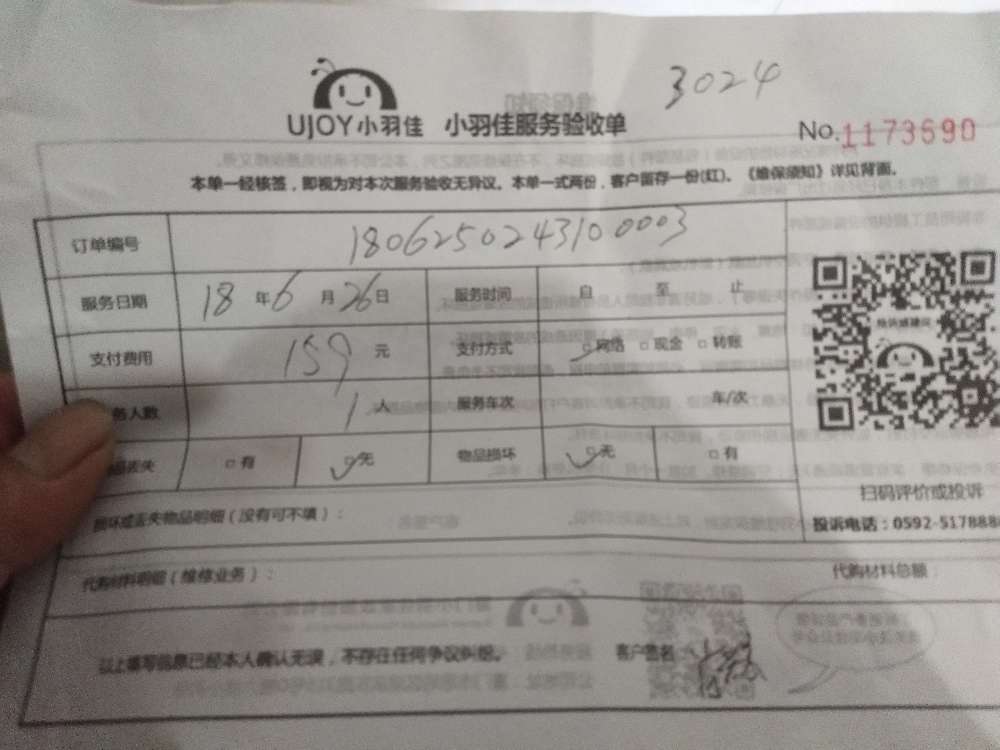 3024
UJOY小羽佳 小羽佳服务验收单
No.1173690
本单一经核签，即视为对本次服务验收无异议。本单一式两份，客户留存一份(红)。《维保须知》详见背面。
订单编号 1806250243100003
服务日期 18年6月26日 服务时间 自 至 止
支付费用 159元 支付方式 网络 □现金 □转账
务人数 1人 服务车次 车/次
品丢失 □有 无 物品损坏 无 □有
损坏或丢失物品明细（没有可不填）：
扫码评价或投诉
投诉电话：0592-5178888
代购材料明细（维修业务）： 代购材料总额
以上填写信息已经本人确认无误，不存在任何争议纠纷。 客户签名